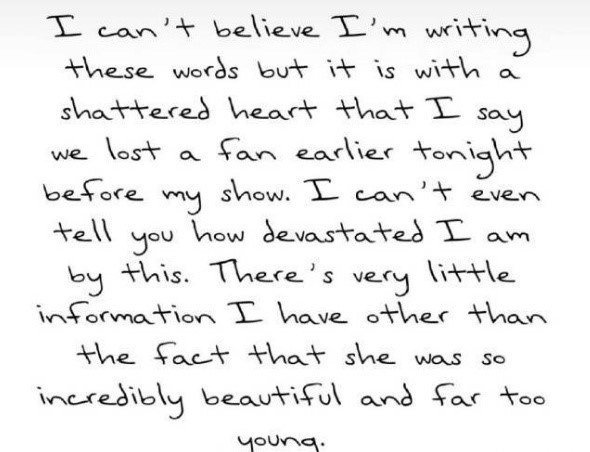 I can't believe I'm writing
these words but it is with a
shattered heart that I say
we lost a fan earlier tonight
before my show. I can't even
tell you how devastated I am
by this. There's very little
information I have other than
the fact that she was so
incredibly beautiful and far too
young.